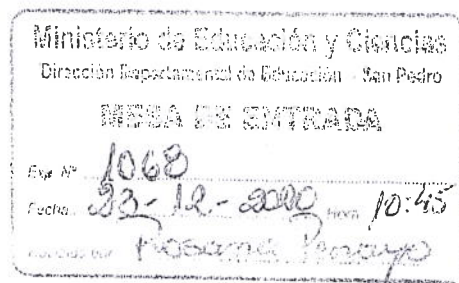 Ministerio de Educación y Ciencias
Dirección Departamental de Educación - San Pedro
MESA DE ENTRADA
Exp. N° 1068
Fecha 23-12-2020 Hora 10:45
Rosana